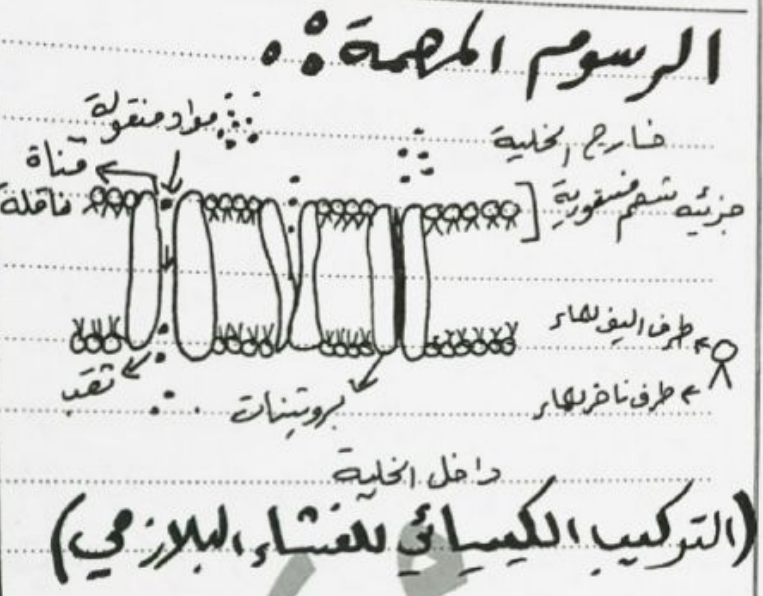 الرسوم المهمة :
خارج الخلية
مواد منقولة
قناة
ناقلة
جزئيه شحم فسفورية
طرف اليف للماء
طرف نافر للماء
ثقب
بروتينات
داخل الخلية
(التركيب الكيميائي للغشاء البلازمي)